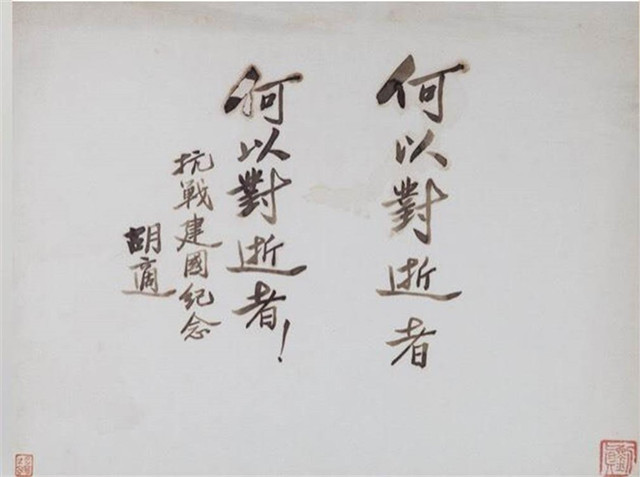 何以對逝者
何以對逝者！
抗戰建國紀念
胡適